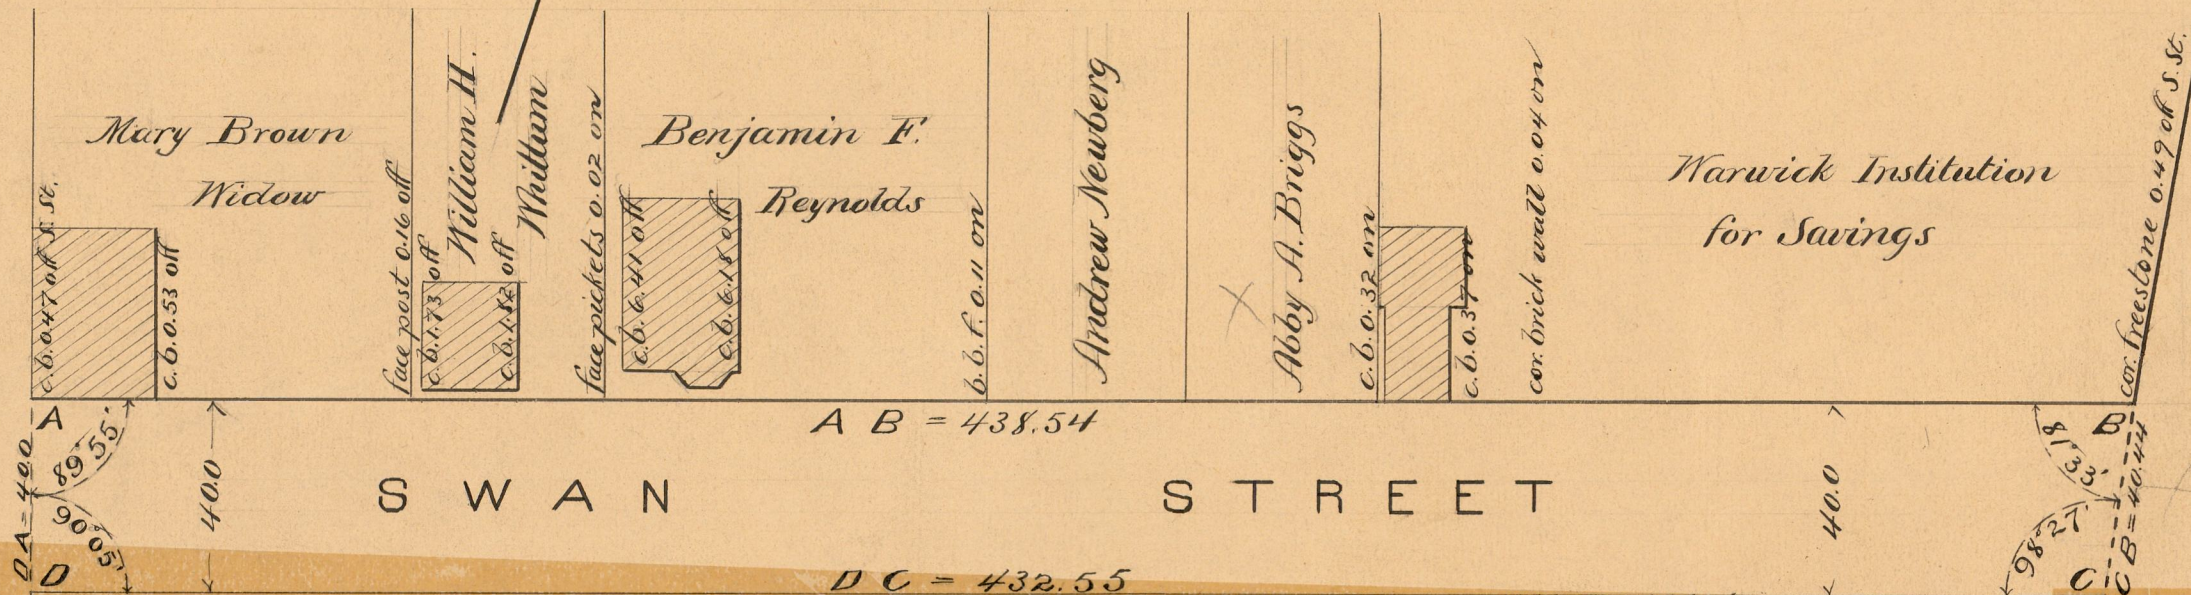 Mary Brown
Widow
c.b. 0.47 off S. St.
c.b. 0.53 off
face post 0.16 off
William H.
Whittum
c.b. 1.73 off
c.b. 1.52 off
face pickets 0.02 on
Benjamin F.
Reynolds
c.b. 6.41 off
c.b. 6.18 off
b.b.f. 0.11 on
Andrew Newberg
Abby A. Briggs
c.b. 0.32 on
c.b. 0.37 on
cor. brick wall 0.04 on
Warwick Institution
for Savings
cor. freestone 0.49 off S. St.
A
A B = 438.54
B
89°55'
81°33'
D A = 40.0
40.0
SWAN STREET
40.0
C B = 40.44
90°05'
98°27'
D
D C = 432.55
C